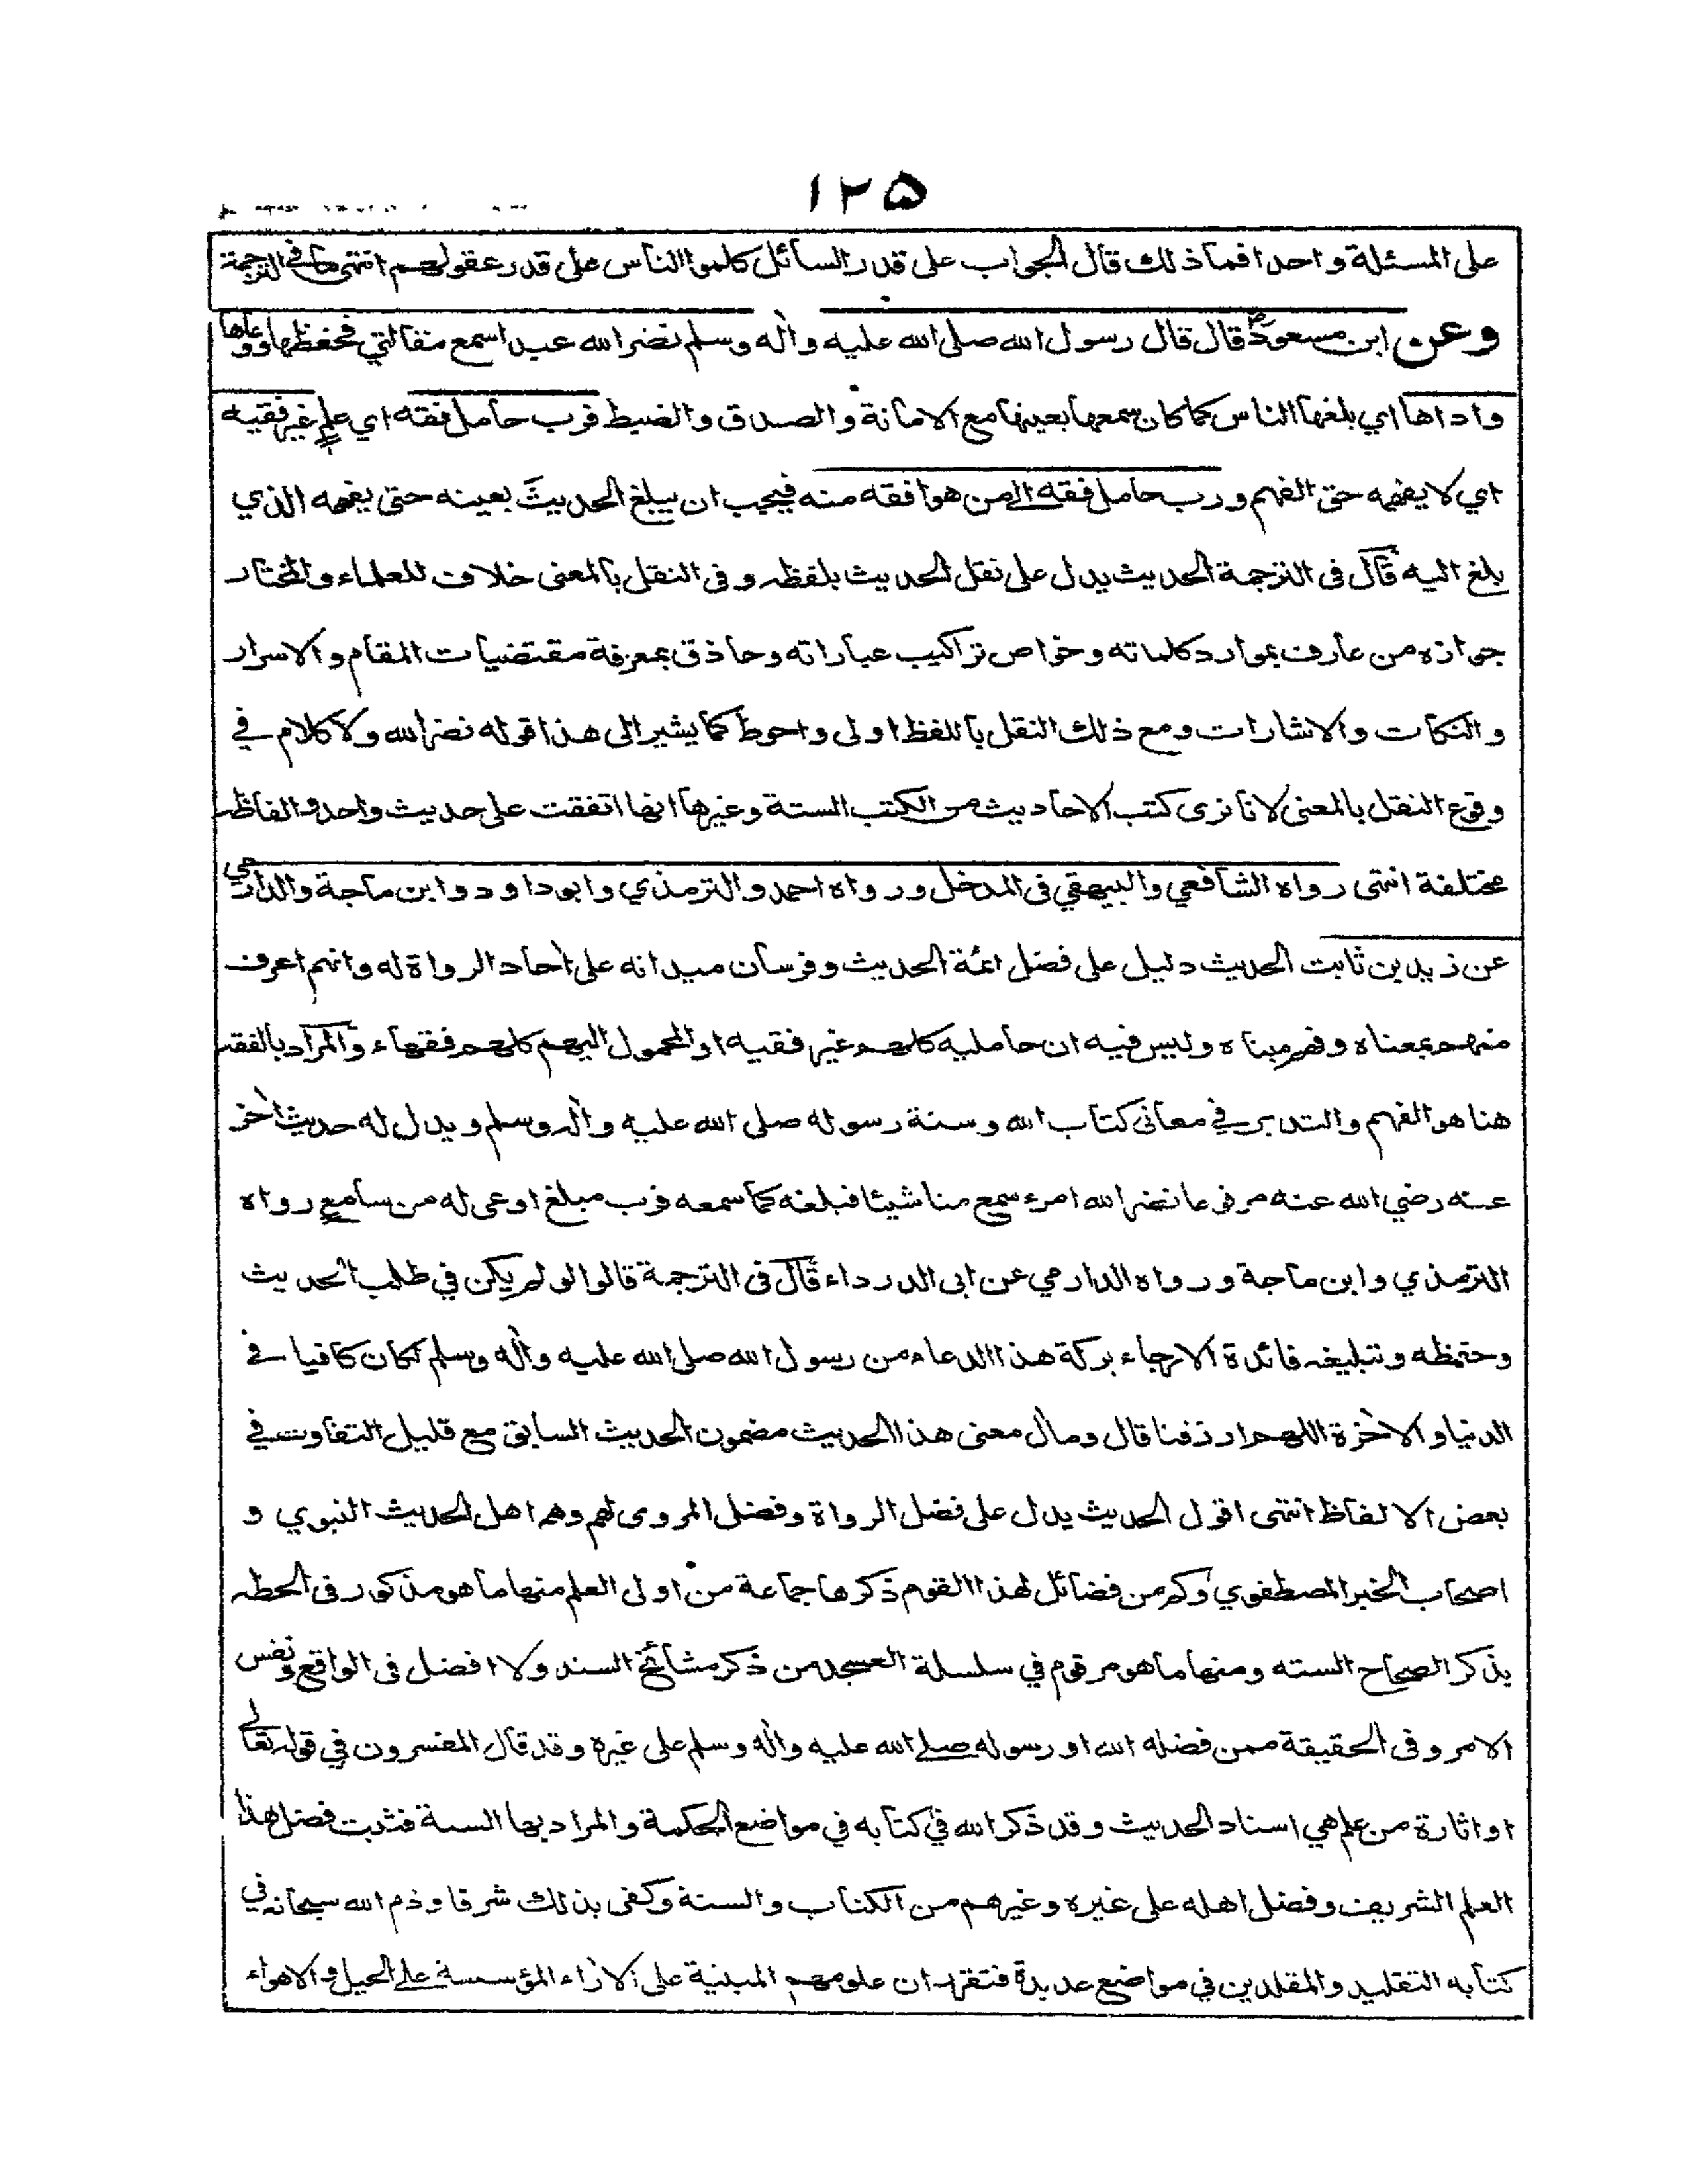 ١٢٥
على المسئلة واحدا فماذلك قال الجواب على قدر السائل كلموا الناس على قدر عقولهم انتهى ما في الترجمة
وعن ابن مسعود رض قال قال رسول الله صلى الله عليه واٰله وسلم نضر الله عبدا سمع مقالتي فحفظها ووعاها
واداها اي بلغها الناس كما كان سمعها بعينها مع الامانة والصدق والضبط فرب حامل فقه اي علم غير فقيه
اي لا يفهمه حق الفهم ورب حامل فقه الى من هو افقه منه فيجب ان يبلغ الحديث بعينه حتى يفهمه الذي
بلغ اليه قال فى الترجمة الحديث يدل على نقل الحديث بلفظه وفى النقل بالمعنى خلاف للعلماء والمختار
جوازه من عارف بموارد كلماته وخواص تراكيب عباراته وحاذق بمعرفة مقتضيات المقام والاسرار
والنكات والاشارات ومع ذلك النقل باللفظ اولى واحوط كما يشير الى هذا قوله نضر الله ولا كلام في
وقوع النقل بالمعنى لانا نرى كتب الاحاديث من الكتب الستة وغيرها انها اتفقت على حديث واحد والفاظه
مختلفة انتهى رواه الشافعي والبيهقي فى المدخل ورواه احمد والترمذي وابو داود وابن ماجة والدارمي
عن زيد بن ثابت الحديث دليل على فضل ائمة الحديث وفرسان ميدانه على اٰحاد الرواة له وانهم اعرف
منهم بمعناه وفهم مبناه وليس فيه ان حامليه كلهم غير فقيه او المحمول اليهم كلهم فقهاء والمراد بالفقه
هنا هو الفهم والتدبر في معانى كتاب الله وسنة رسوله صلى الله عليه واٰله وسلم ويدل له حديث اٰخر
عنه رضي الله عنه مرفوعا نضر الله امرء سمع منا شيئا فبلغه كما سمعه فرب مبلغ اوعى له من سامع رواه
الترمذي وابن ماجة ورواه الدارمي عن ابى الدرداء قال فى الترجمة قالوا لو لم يكن في طلب الحديث
وحفظه وتبليغه فائدة الا رجاء بركة هذا الدعاء من رسول الله صلى الله عليه واٰله وسلم لكان كافيا في
الدنيا والاٰخرة اللهم ارزقنا قال ومآل معنى هذا الحديث مضمون الحديث السابق مع قليل التفاوت في
بعض الالفاظ انتهى اقول الحديث يدل على فضل الرواة وفضل المروى لهم وهم اهل الحديث النبوي و
اصحاب الخبر المصطفوي وكم من فضائل لهذا القوم ذكرها جماعة من اولى العلم منها ما هو مذكور فى الحطه
بذكر الصحاح السته ومنها ما هو مرقوم في سلسلة العسجد من ذكر مشائخ السند ولا افضل فى الواقع ونفس
الامر وفى الحقيقة ممن فضله الله او رسوله صلى الله عليه واٰله وسلم على غيره وقد قال المفسرون في قوله تعالى
او اثارة من علم هي اسناد الحديث وقد ذكر الله في كتابه في مواضع الحكمة والمراد بها السنة فثبت فضل هذا
العلم الشريف وفضل اهله على غيره وغيرهم من الكتاب والسنة وكفى بذلك شرفا وذم الله سبحانه في
كتابه التقليد والمقلدين في مواضع عديدة فتقرر ان علومهم المبنية على الاٰراء المؤسسة على الحيل والاهواء